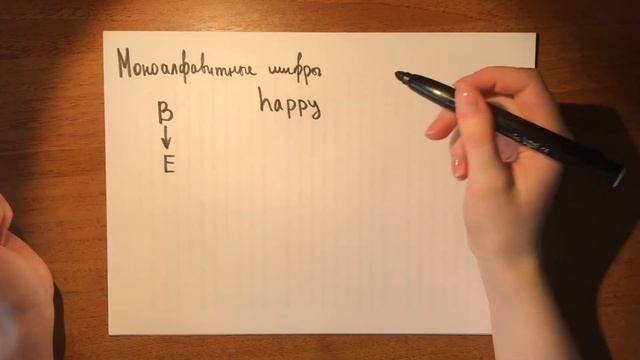 Моноалфавитные шифры
happy
B
E